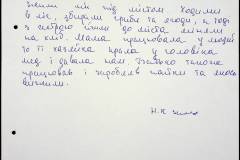 жили ми під містом. Ходили
в ліс, збирали гриби та ягоди, а тоді
з сестрою ішли до міста міняли
на хліб. Мама працювала у людей
то її хазяйка крала у чоловіка
мед і давала нам. Батько також
працював і заробляв пайки та якось
вижили.
Н.К